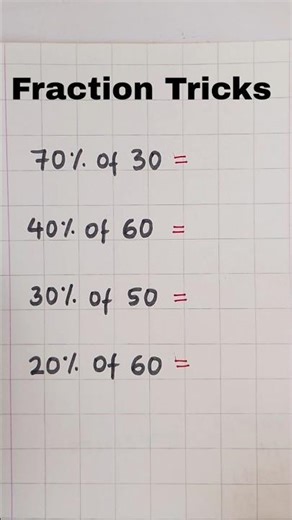 Fraction Tricks
70% of 30 =
40% of 60 =
30% of 50 =
20% of 60 =